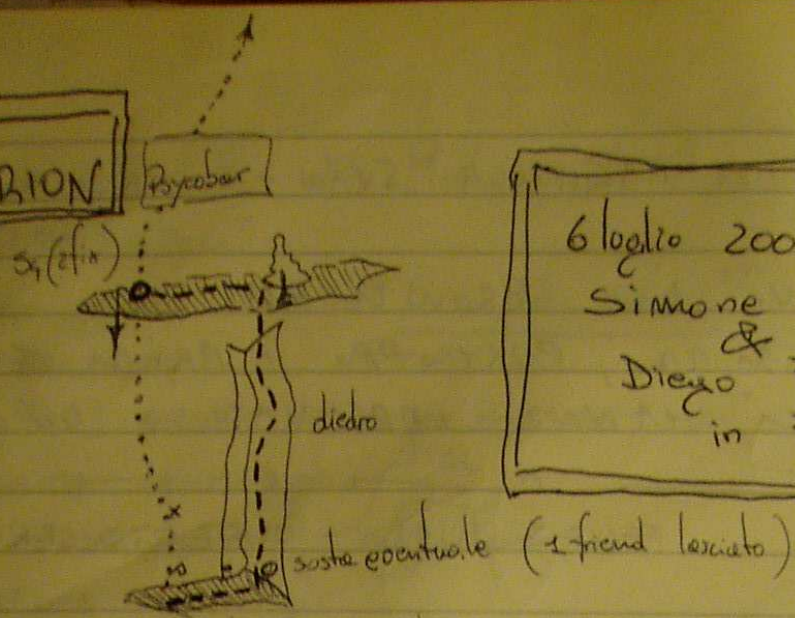 RION
Psycobar
S1 (2 fix)
6 luglio 200
Simone
&
Diego
in
diedro
sosta eventuale (1 friend lasciato)